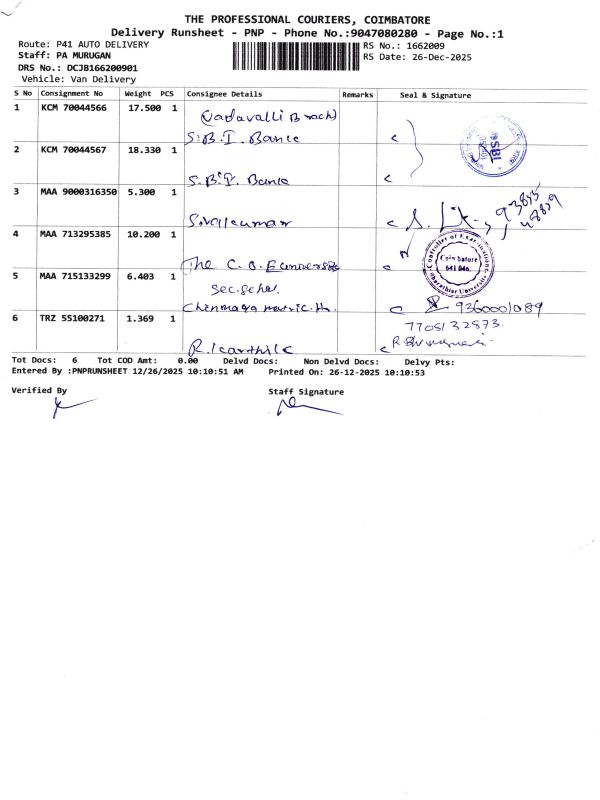 THE PROFESSIONAL COURIERS, COIMBATORE
Delivery Runsheet - PNP - Phone No.:9047080280 - Page No.:1
Route: P41 AUTO DELIVERY
RS No.: 1662009
Staff: PA MURUGAN
RS Date: 26-Dec-2025
DRS No.: DCJB166200901
Vehicle: Van Delivery
S No Consignment No Weight PCS Consignee Details Remarks Seal & Signature
1 KCM 70044566 17.500 1
S.B.I. Bank
SBI
2 KCM 70044567 18.330 1
S.B.I. Bank
3 MAA 9000316350 5.300 1
4 MAA 713295385 10.200 1
The C.O.E
Controller of Examinations
Coimbatore
641 046.
Bharathiar University
5 MAA 715133299 6.403 1
9360001089
6 TRZ 55100271 1.369 1
7705132873
R. Karthik
Tot Docs: 6 Tot COD Amt: 0.00 Delvd Docs: Non Delvd Docs: Delvy Pts:
Entered By :PNPRUNSHEET 12/26/2025 10:10:51 AM Printed On: 26-12-2025 10:10:53
Verified By
Staff Signature